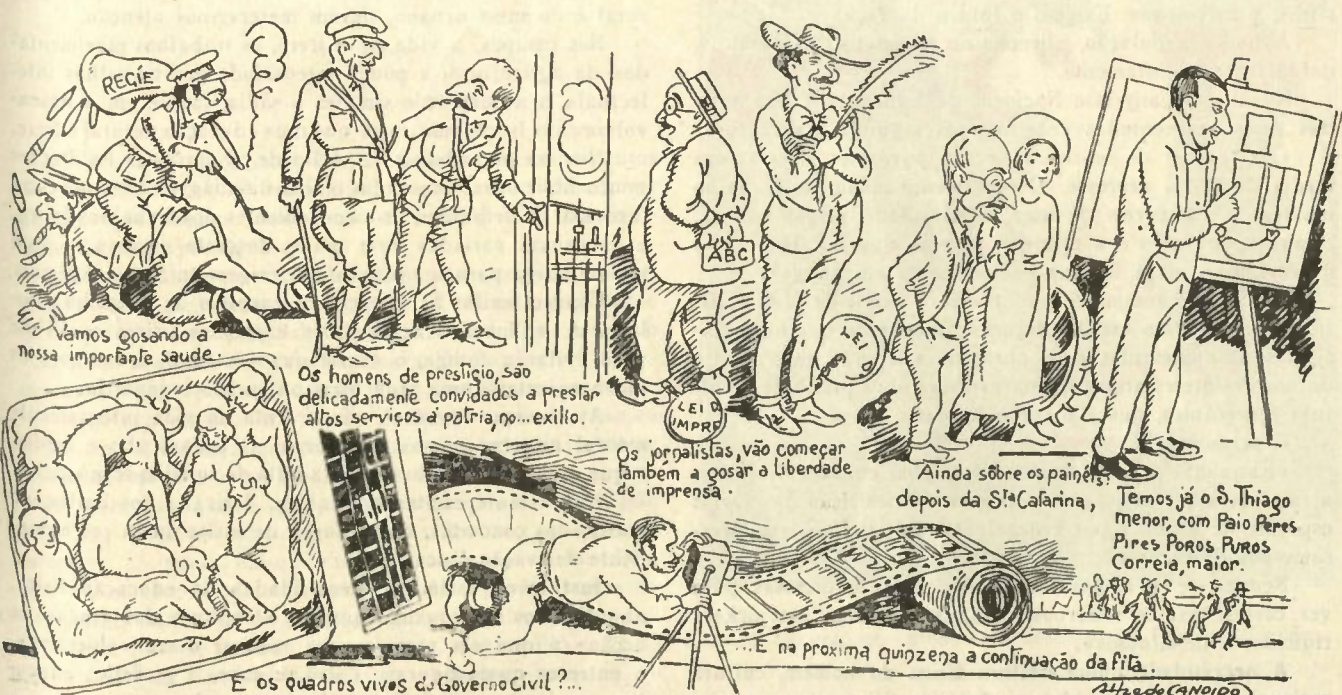 REGIE
Vamos gosando a
nossa importante saude.
Os homens de prestigio, são
delicadamente convidades a prestar
altos serviços á patria, no...exilio.
ABC
LEI D
IMPRE
LEI
Os jornalistas, vão começar
também a gosar a liberdade
de imprensa
Ainda sôbre os painéis:
depois da Sta Catarina,
Temos já o S. Thiago
menor, com Paio Peres
Pires POROS PUROS
Correia, maior.
E os quadros vivos do Governo Civil?...
...E na proxima quinzena a continuação da fita.
Alfredo CANDIDO